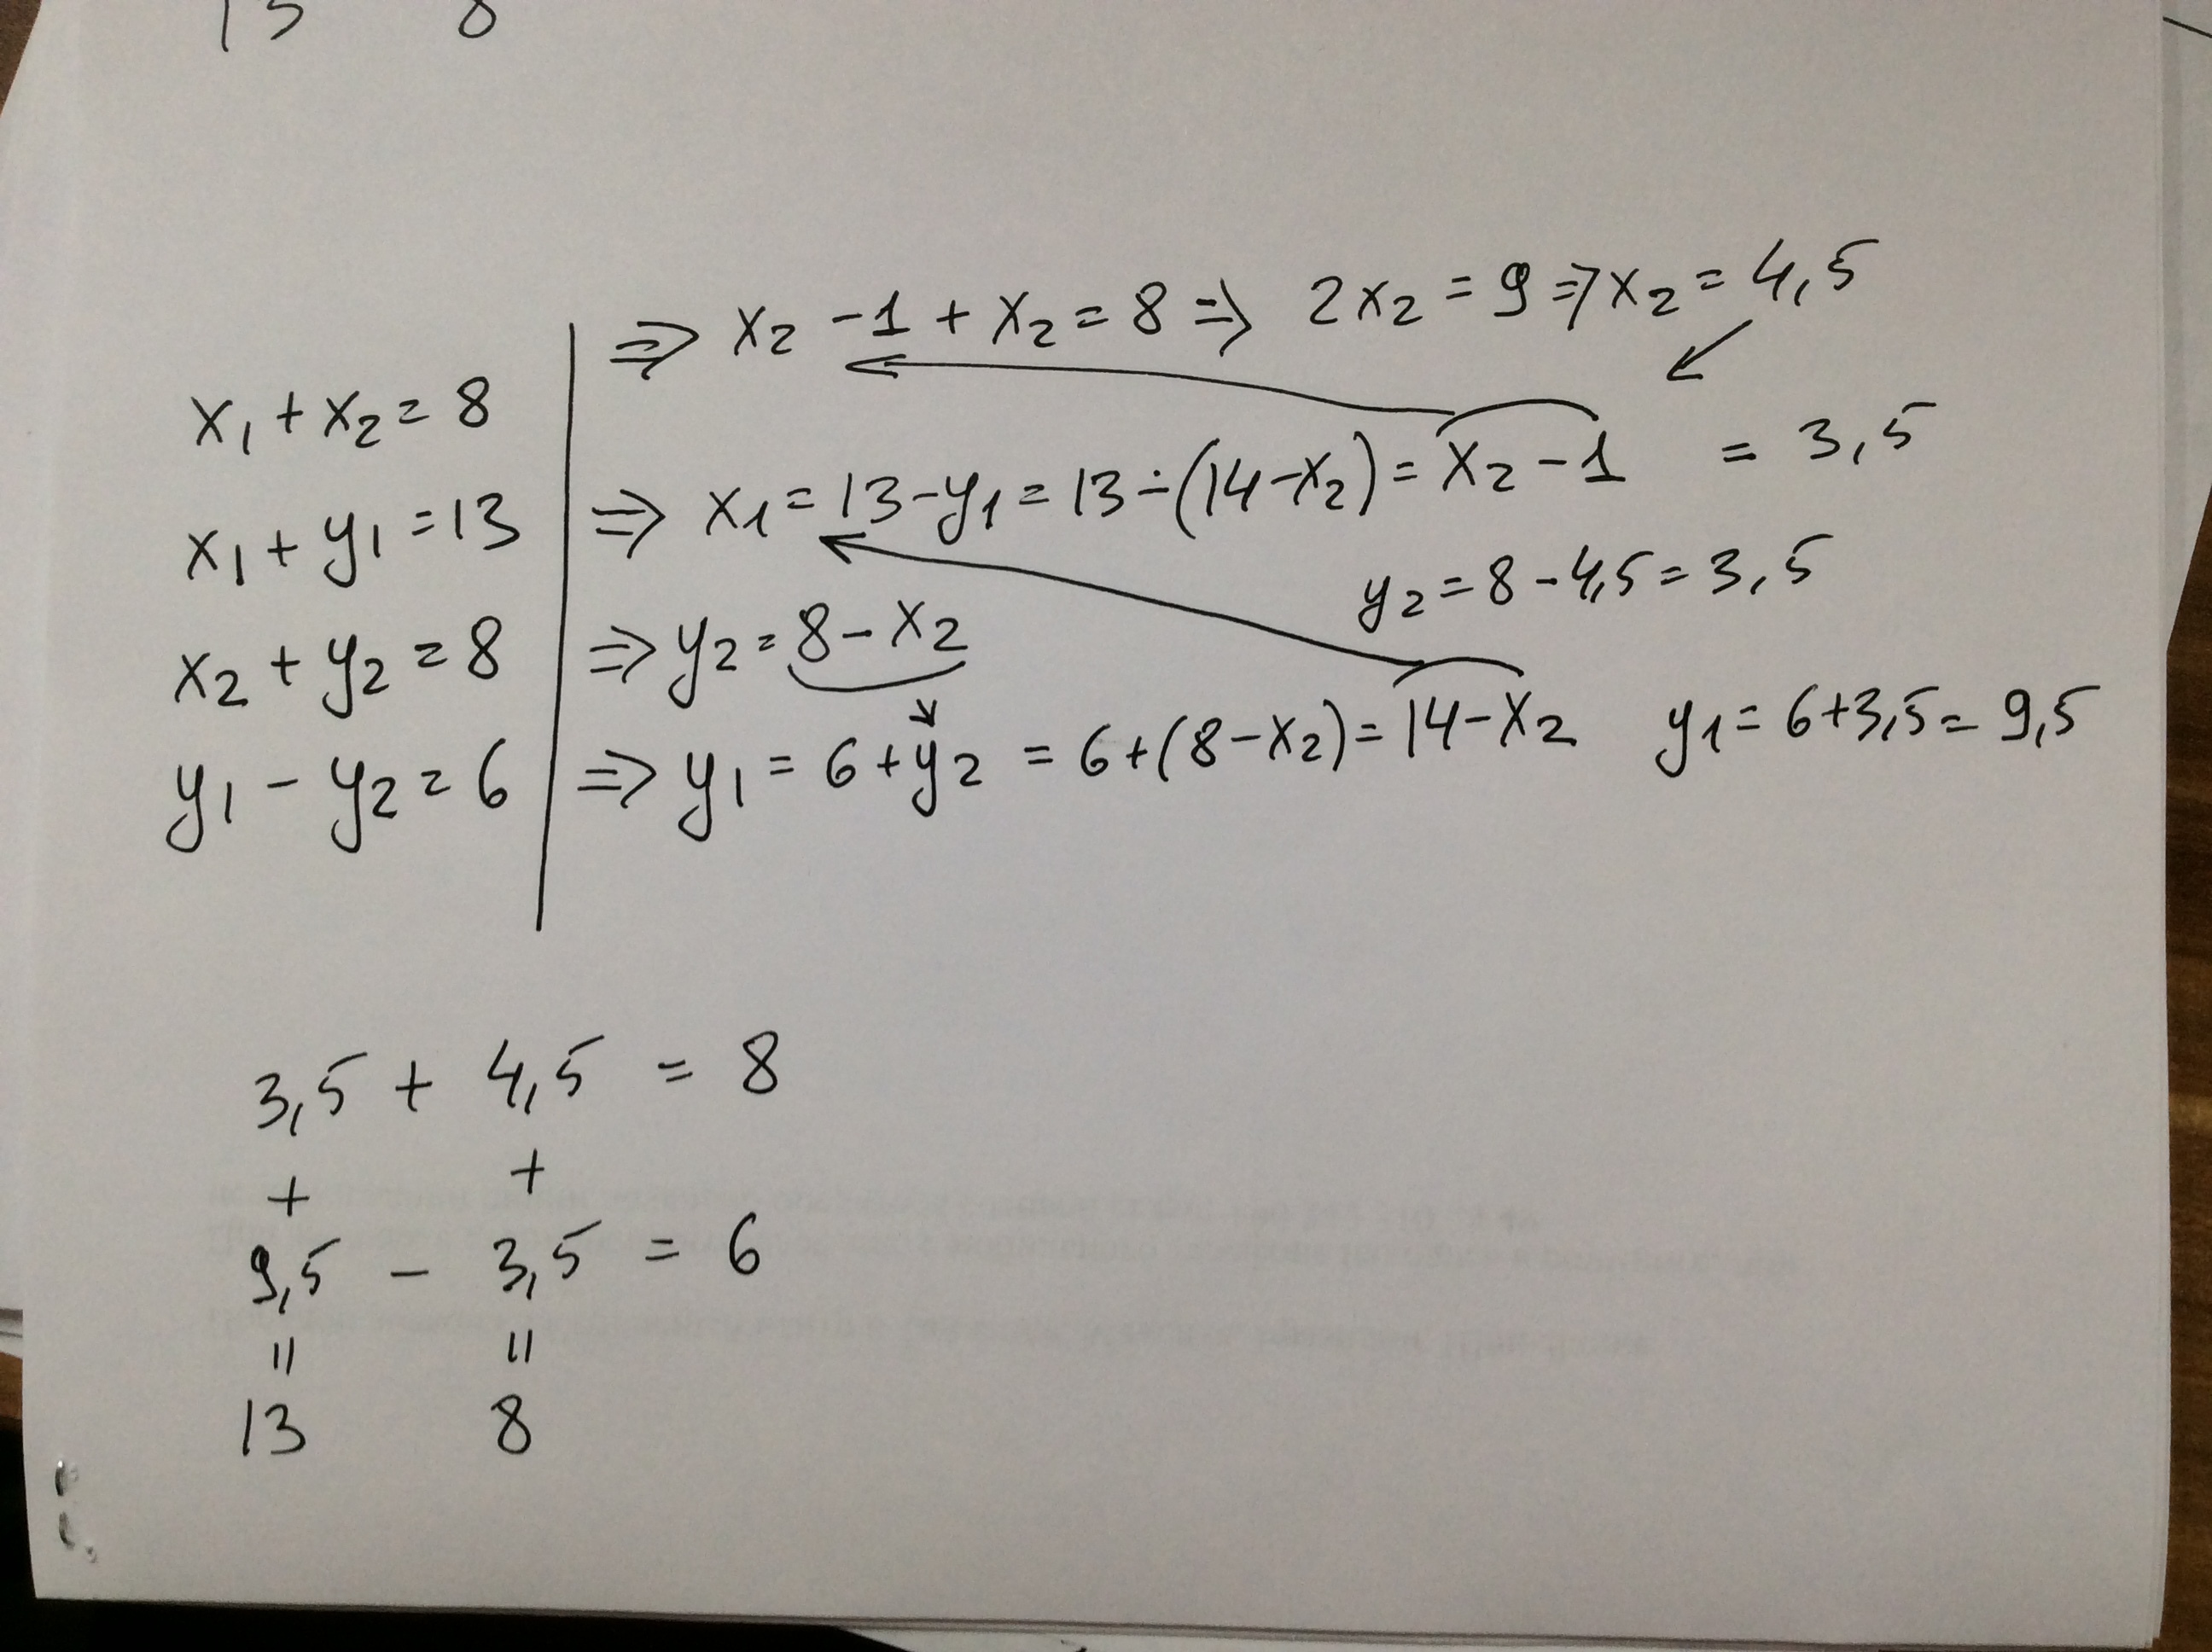 13 8
⇒ x₂ - 1 + x₂ = 8 ⇒ 2x₂ = 9 ⇒ x₂ = 4,5
x₁ + x₂ = 8
x₁ + y₁ = 13 ⇒ x₁ = 13 - y₁ = 13 - (14 - x₂) = x₂ - 1 = 3,5
y₂ = 8 - 4,5 = 3,5
x₂ + y₂ = 8 ⇒ y₂ = 8 - x₂
y₁ - y₂ = 6 ⇒ y₁ = 6 + y₂ = 6 + (8 - x₂) = 14 - x₂ y₁ = 6 + 3,5 = 9,5
3,5 + 4,5 = 8
+ +
9,5 - 3,5 = 6
= =
13 8